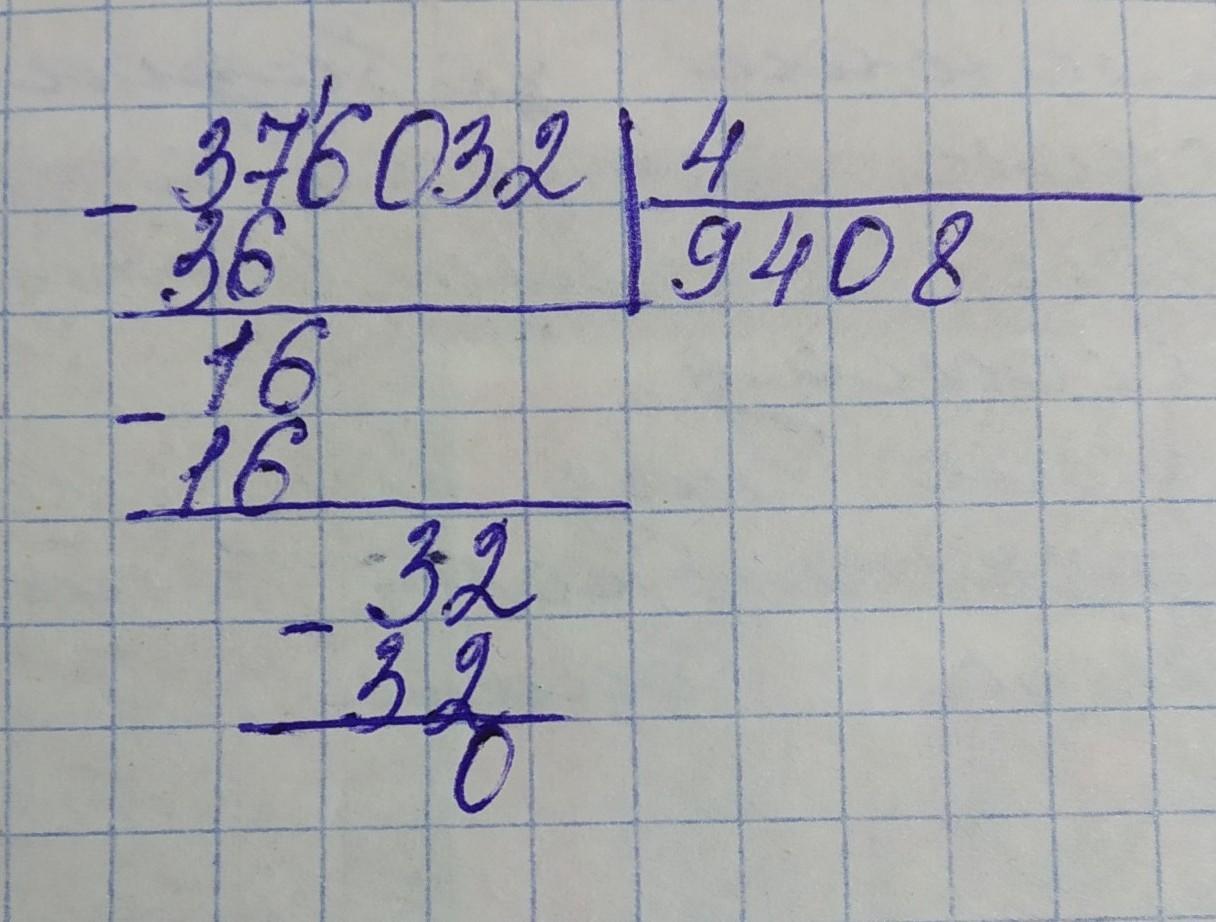 - 376032 | 4
36 | 9408
- 16
16
- 32
32
0